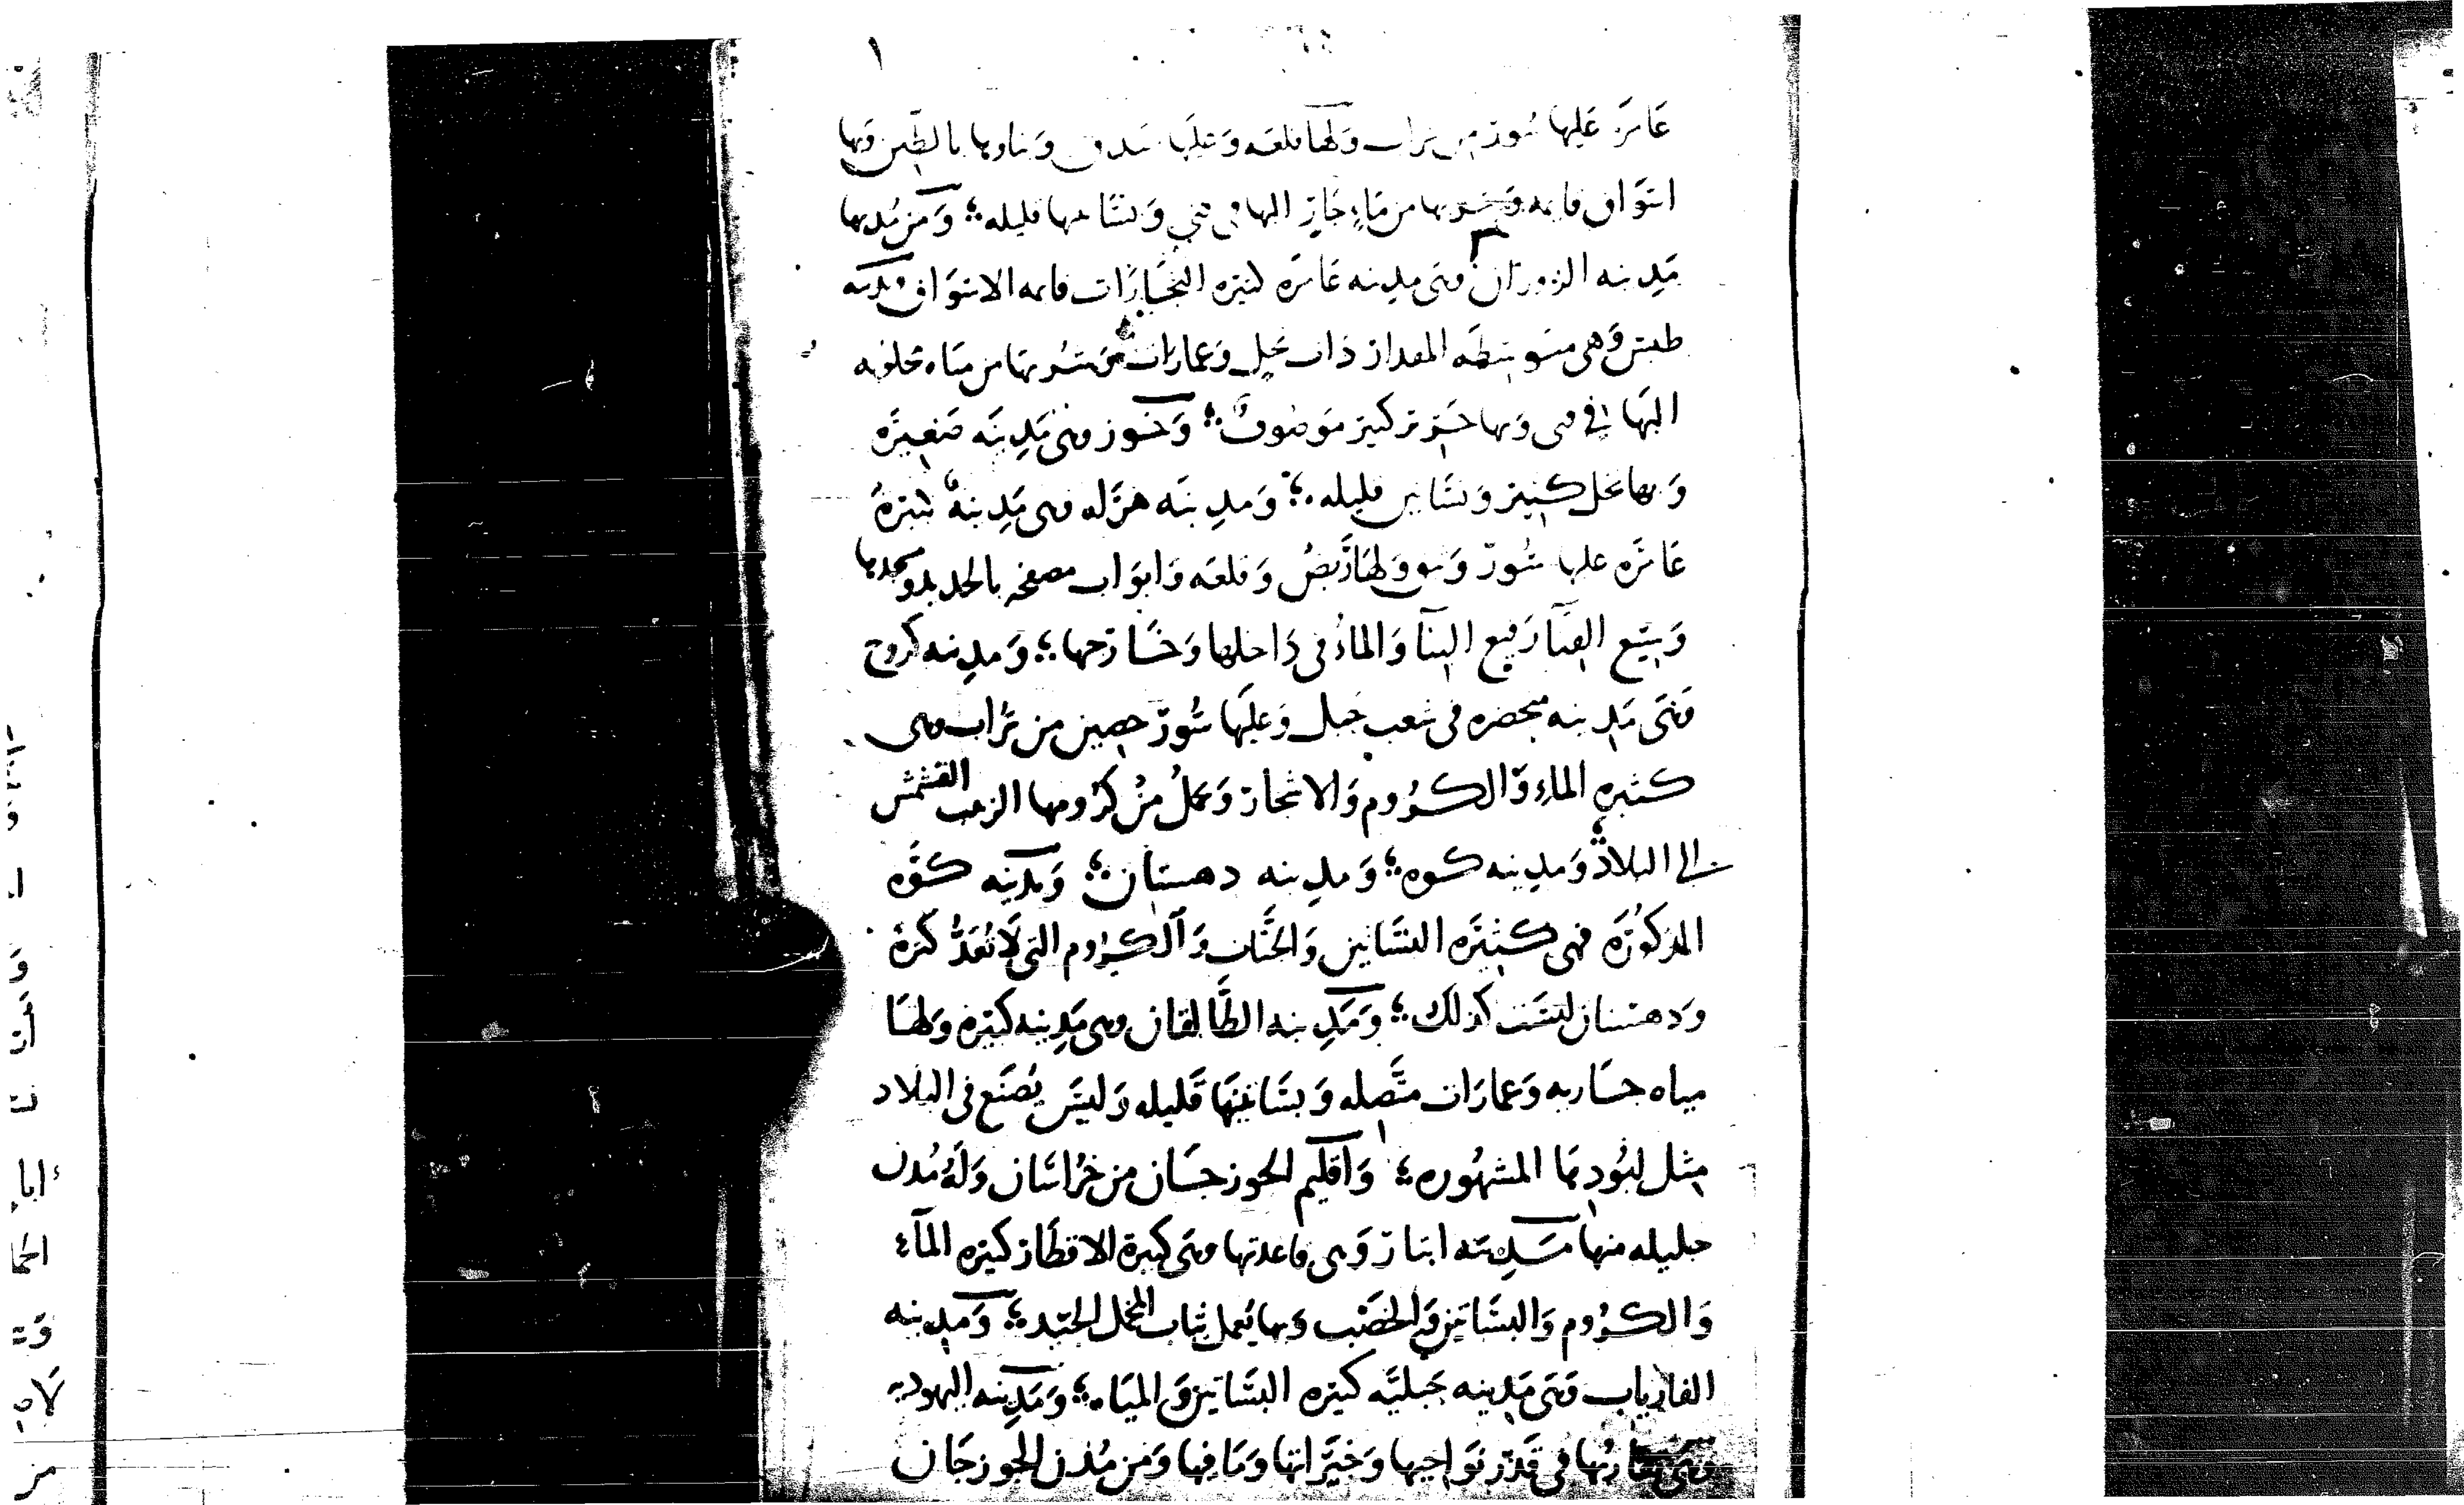 ١
عامرة عليها سور من تراب ولها قلعه وعليها خندق وبناوها بالطين وبها
اسواق قايمه وشربها من ماء جاري اليها في قني وبساتينها قليله ؛ ومن مدنها
مدينه الزوزان وهي مدينه عامرة كثيره التجارات قايمه الاسواق ومدينه
طبس وهي متوسطه المقدار ذات نخل وعمارات وشربها من مياه مخلوبه
اليها في قني وبها خير كثير موصوف ؛ وخور وهي مدينه صغيره
وبها نخل كثير وبساتين قليله ؛ ومدينه هراه وهي مدينة كبيرة
عامره عليها سور ولها ربض وقلعه وابواب مصفحه بالحديد ومسجدها
وسيع الفنا رفيع البنا والماء في داخلها وخارجها ؛ ومدينه كروخ
فهي مدينه متحضره في شعب جبل وعليها سور حصين من تراب وهي
كثيره الماء والكروم والاشجار ويحمل من كرومها الزبيب القشمش
الى البلاد ومدينه كوه ؛ ومدينه دهستان ؛ ومدينه كوه
المذكورة فهي كثيره البساتين والجنات والكروم التي لا تعد كثرة
ودهستان ليست كذلك ؛ ومدينه الطالقان وهي مدينه كبيره ولها
مياه جاريه وعمارات متصله وبساتينها قليله وليس يصنع في البلاد
مثل لبودها المشهوره ؛ واقليم الجوزجان من خراسان وله مدن
جليله منها مدينه انبار وهي قاعدتها وهي كبيرة الاقطار كثيره الماء
والكروم والبساتين والخصب وبها يعمل ثياب المخمل الجيد ؛ ومدينه
الفارياب وهي مدينه جبليه كثيره البساتين والمياه ؛ ومدينه اليهوديه
وهي تقاربها في قدر نواحيها وخيراتها وما فيها ومن مدن الجوزجان